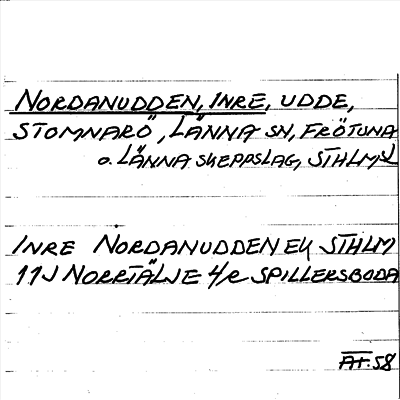 NORDANUDDEN, INRE, UDDE,
STOMNARÖ, LÄNNA SN, FRÖTUNA
o. LÄNNA SKEPPSLAG, STHLMS L
INRE NORDANUDDEN EK STHLM
11J NORRTÄLJE 4/e SPILLERSBODA
AT. 58